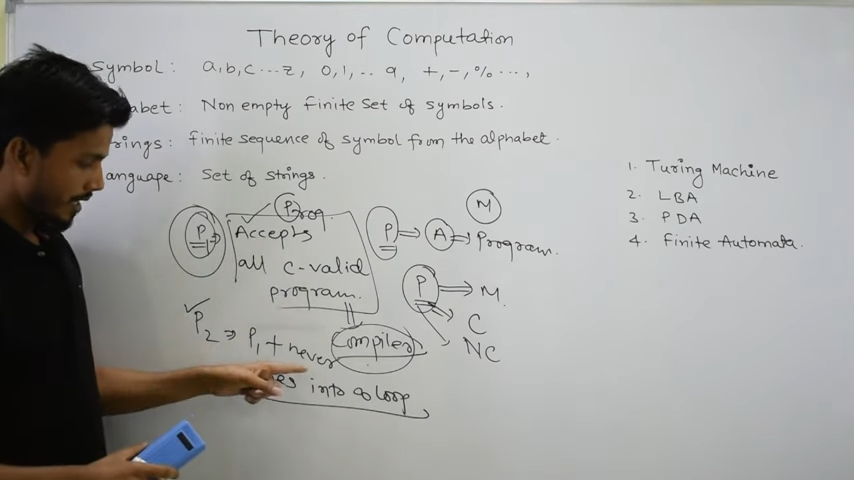 Theory of Computation
Symbol: a, b, c ... z, 0, 1, .. 9, +, -, % ... ,
abet: Non empty finite set of symbols.
rings: finite sequence of symbol from the alphabet.
anguage: Set of strings.
P1 => Accepts all c-valid program.
Prog.
Compiler
P2 => P1 + never
into a loop
P => A => Program.
M
P => M.
C
NC
1. Turing Machine
2. LBA
3. PDA
4. Finite Automata.